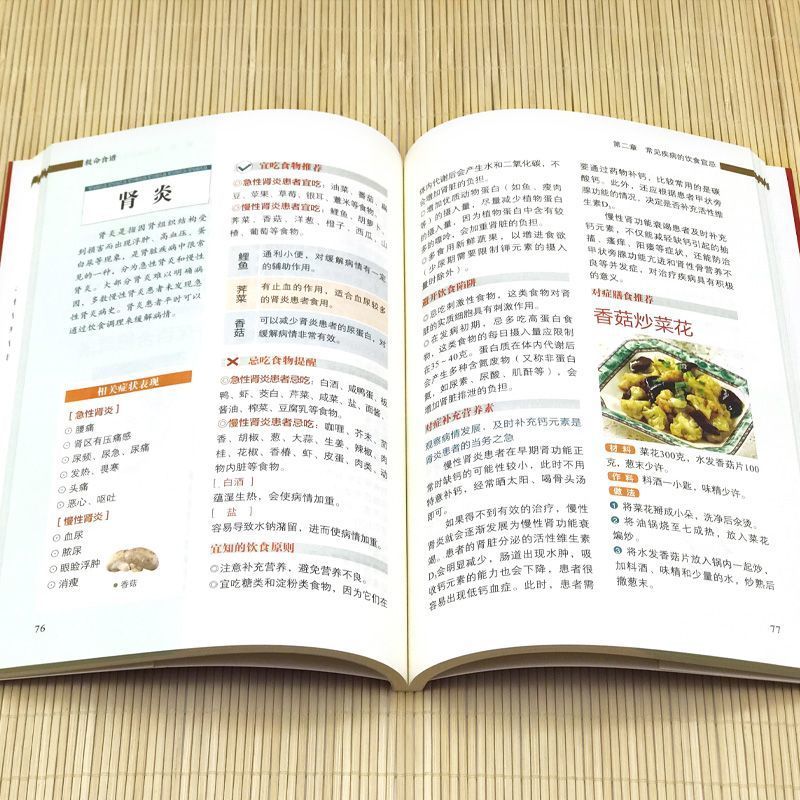 救命食谱
肾 炎
肾炎是指因肾组织结构受
到损害而出现浮肿、高血压、蛋
白尿等现象，是肾脏疾病中很常
见的一种，分为急性肾炎和慢性
肾炎。大部分肾炎难以明确病
因，多数慢性肾炎患者未发现急
性肾炎病史。肾炎患者平时可以
通过饮食调理来缓解病情。
相关症状表现
[急性肾炎]
⊙腰痛
⊙肾区有压痛感
⊙尿频、尿急、尿痛
⊙发热、畏寒
⊙头痛
⊙恶心、呕吐
[慢性肾炎]
⊙血尿
⊙脓尿
⊙眼睑浮肿
⊙消瘦
香菇
76
宜吃食物推荐
◎急性肾炎患者宜吃：油菜、番茄、扁
豆、苹果、草莓、银耳、薏米等食物。
◎慢性肾炎患者宜吃：鲤鱼、胡萝卜、
荠菜、香菇、洋葱、橙子、西瓜、山
楂、葡萄等食物。
鲤鱼 通利小便，对缓解病情有一定
的辅助作用。
荠菜 有止血的作用，适合血尿较多
的肾炎患者食用。
香菇 可以减少肾炎患者的尿蛋白，对
缓解病情非常有效。
忌吃食物提醒
◎急性肾炎患者忌吃：白酒、咸鸭蛋、板
鸭、虾、茭白、芹菜、咸菜、盐、面酱、
酱油、榨菜、豆腐乳等食物。
◎慢性肾炎患者忌吃：咖喱、芥末、茴
香、胡椒、葱、大蒜、生姜、辣椒、肉
桂、花椒、香椿、虾、皮蛋、肉类、动
物内脏等食物。
[白酒]
蕴湿生热，会使病情加重。
[盐]
容易导致水钠潴留，进而使病情加重。
宜知的饮食原则
◎注意补充营养，避免营养不良。
◎宜吃糖类和淀粉类食物，因为它们在
第二章 常见疾病的饮食宜忌
体内代谢后会产生水和二氧化碳，不
会增加肾脏的负担。
◎增加优质动物蛋白（如鱼、瘦肉
等）的摄入量，尽量减少植物蛋白
的摄入量，因为植物蛋白中含有较
多的嘌呤，会加重肾脏的负担。
◎多食用新鲜蔬果，以增进食欲
（少尿期需要限制钾元素的摄入
量时除外）。
避开饮食陷阱
◎忌吃刺激性食物，这类食物对肾
脏的实质细胞具有刺激作用。
◎在发病初期，忌多吃高蛋白食
物，这类食物的每日摄入量应限制
在35～40克。蛋白质在体内代谢后
会产生多种含氮废物（又称非蛋白
氮，如尿素、尿酸、肌酐等），会
增加肾脏排泄的负担。
对症补充营养素
观察病情发展，及时补充钙元素是
肾炎患者的当务之急
慢性肾炎患者在早期肾功能正
常时缺钙的可能性较小，此时不用
特意补钙，经常晒太阳、喝骨头汤
即可。
如果得不到有效的治疗，慢性
肾炎就会逐渐发展为慢性肾功能衰
竭。患者的肾脏分泌的活性维生素
D₃会明显减少，肠道出现水肿，吸
收钙元素的能力也会下降，患者很
容易出现低钙血症。此时，患者需
要通过药物补钙，比较常用的是碳
酸钙。此外，还应根据患者甲状旁
腺功能的情况，决定是否补充活性维
生素D₃。
慢性肾功能衰竭患者及时补充
钙元素，不仅能减轻缺钙引起的抽
搐、瘙痒、阳痿等症状，还能防治
甲状旁腺功能亢进和肾性骨营养不
良等并发症，对治疗疾病具有积极
的意义。
对症膳食推荐
香菇炒菜花
材料 菜花300克，水发香菇片100
克，葱末少许。
作料 料酒一小匙，味精少许。
做法
1 将菜花掰成小朵，洗净后余烫。
2 将油锅烧至七成热，放入菜花
煸炒。
3 将水发香菇片放入锅内一起炒，
加料酒、味精和少量的水，炒熟后
撒葱末。
77